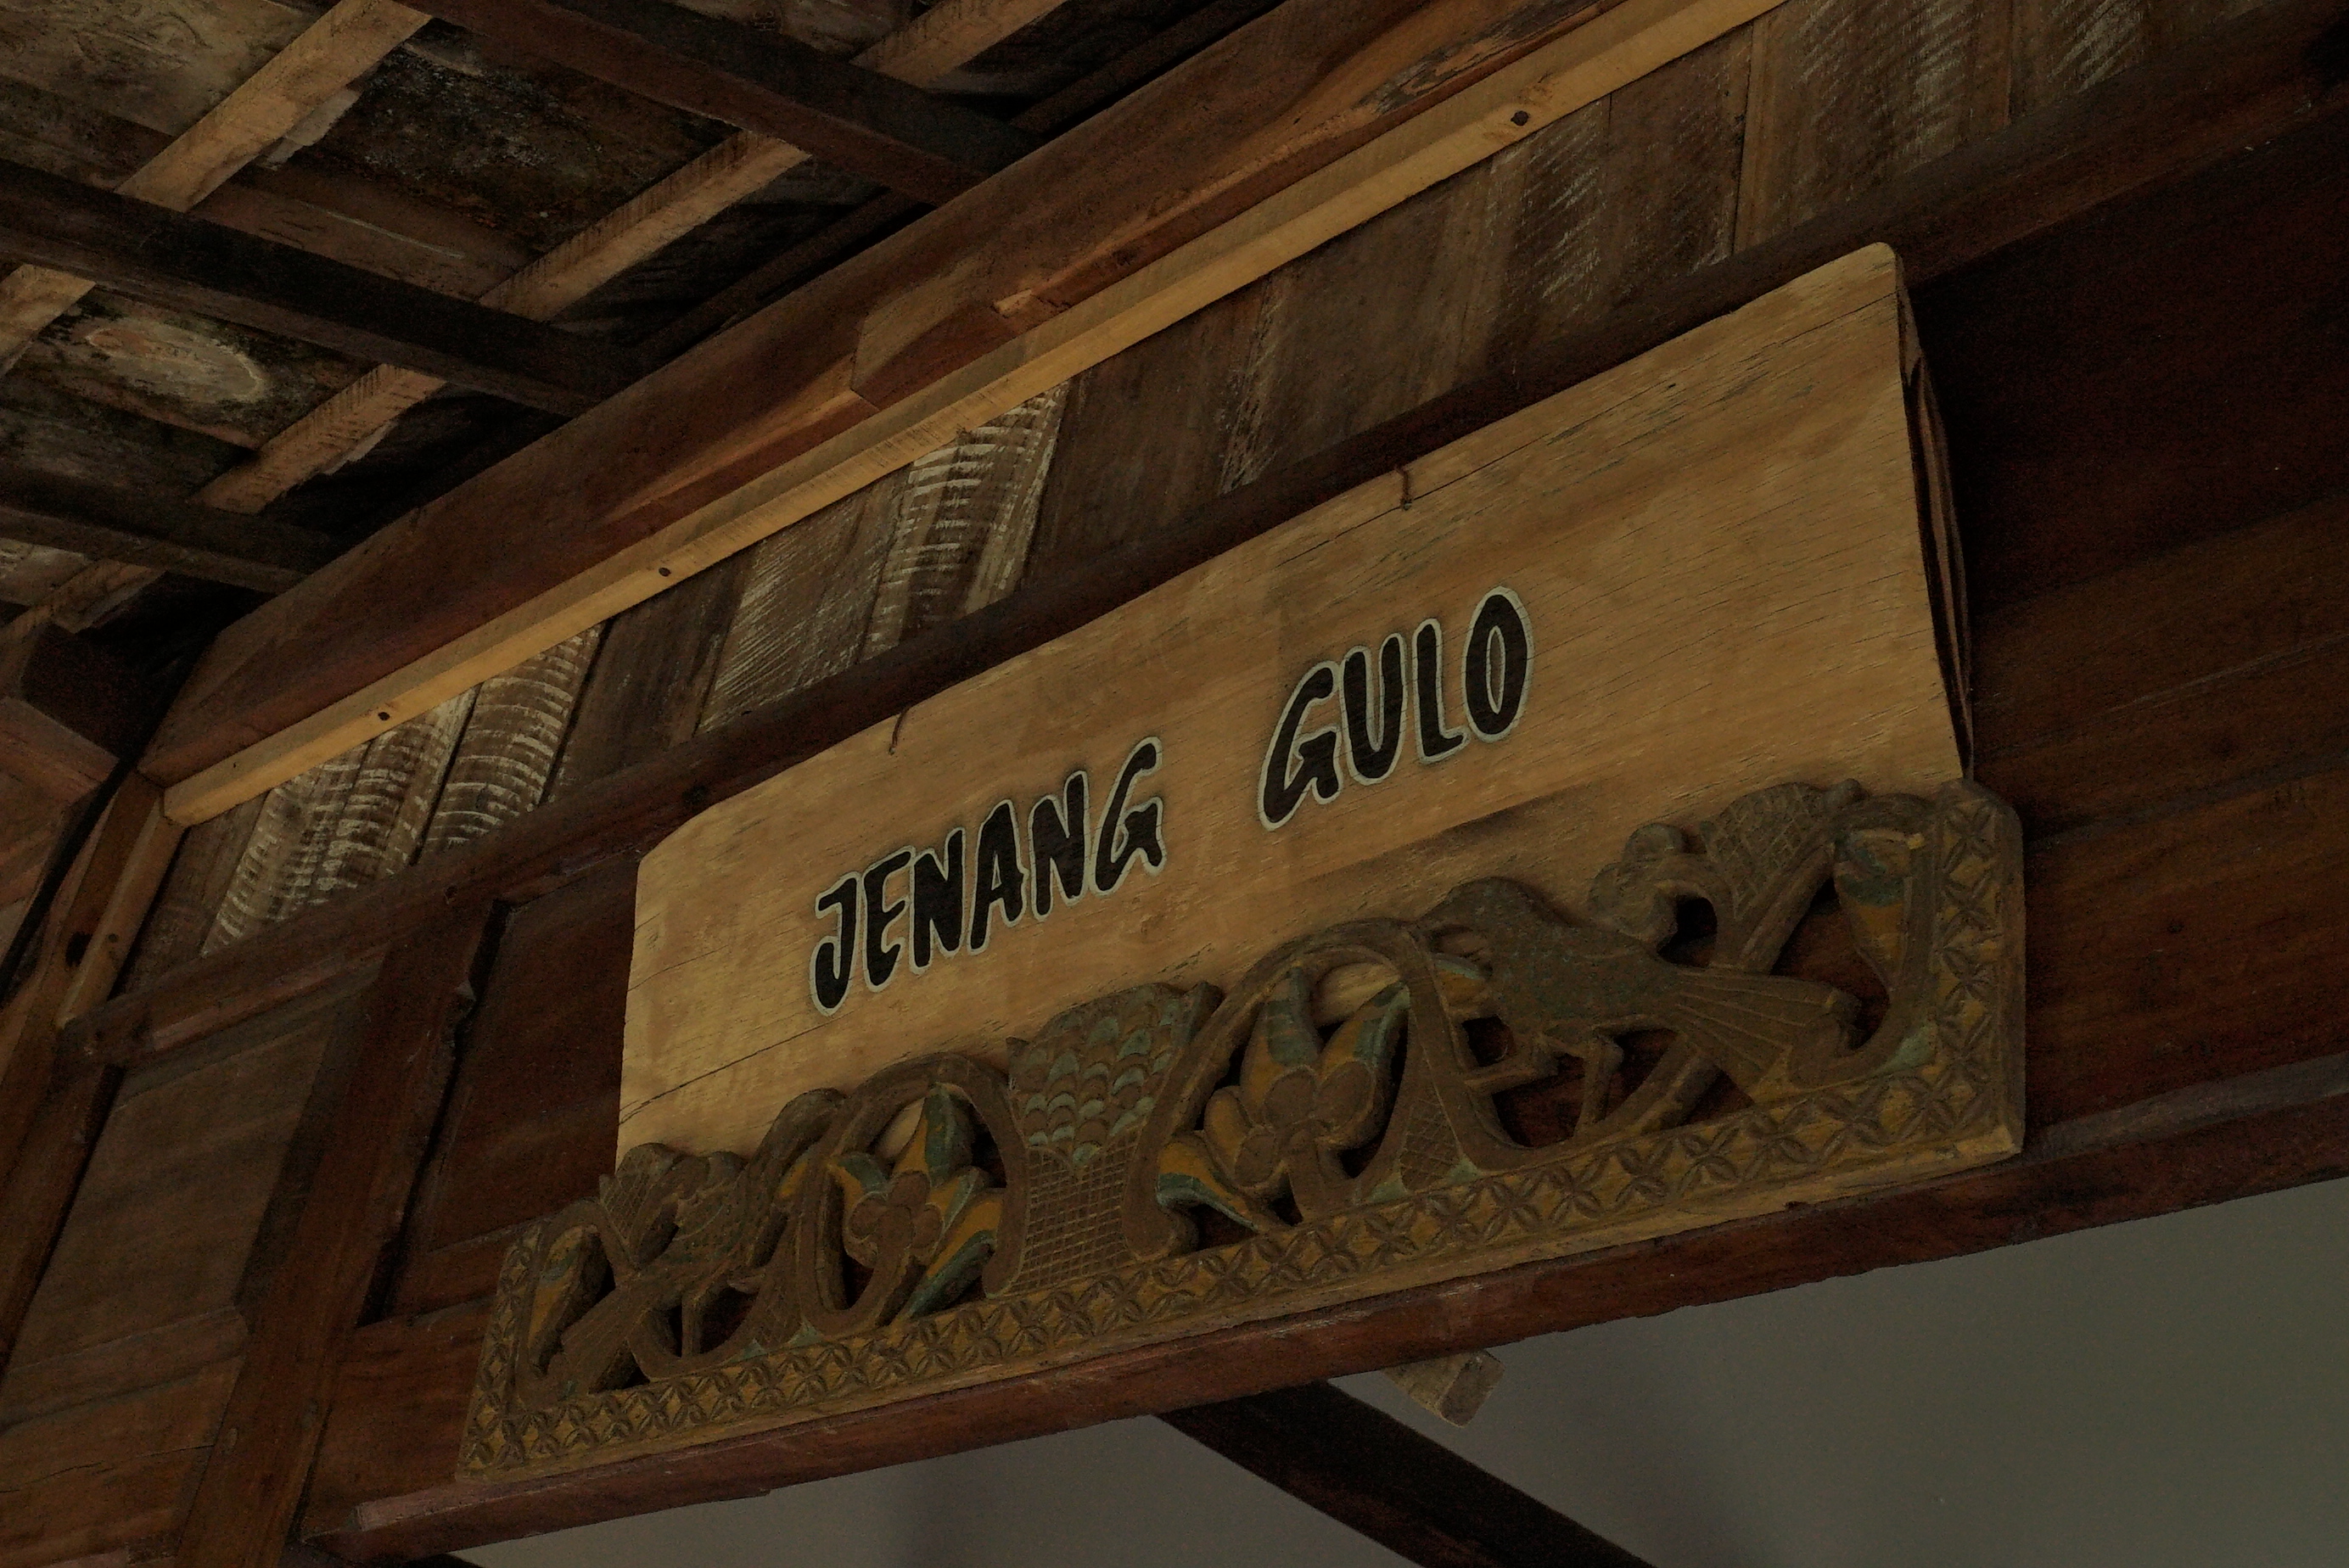 JENANG GULO